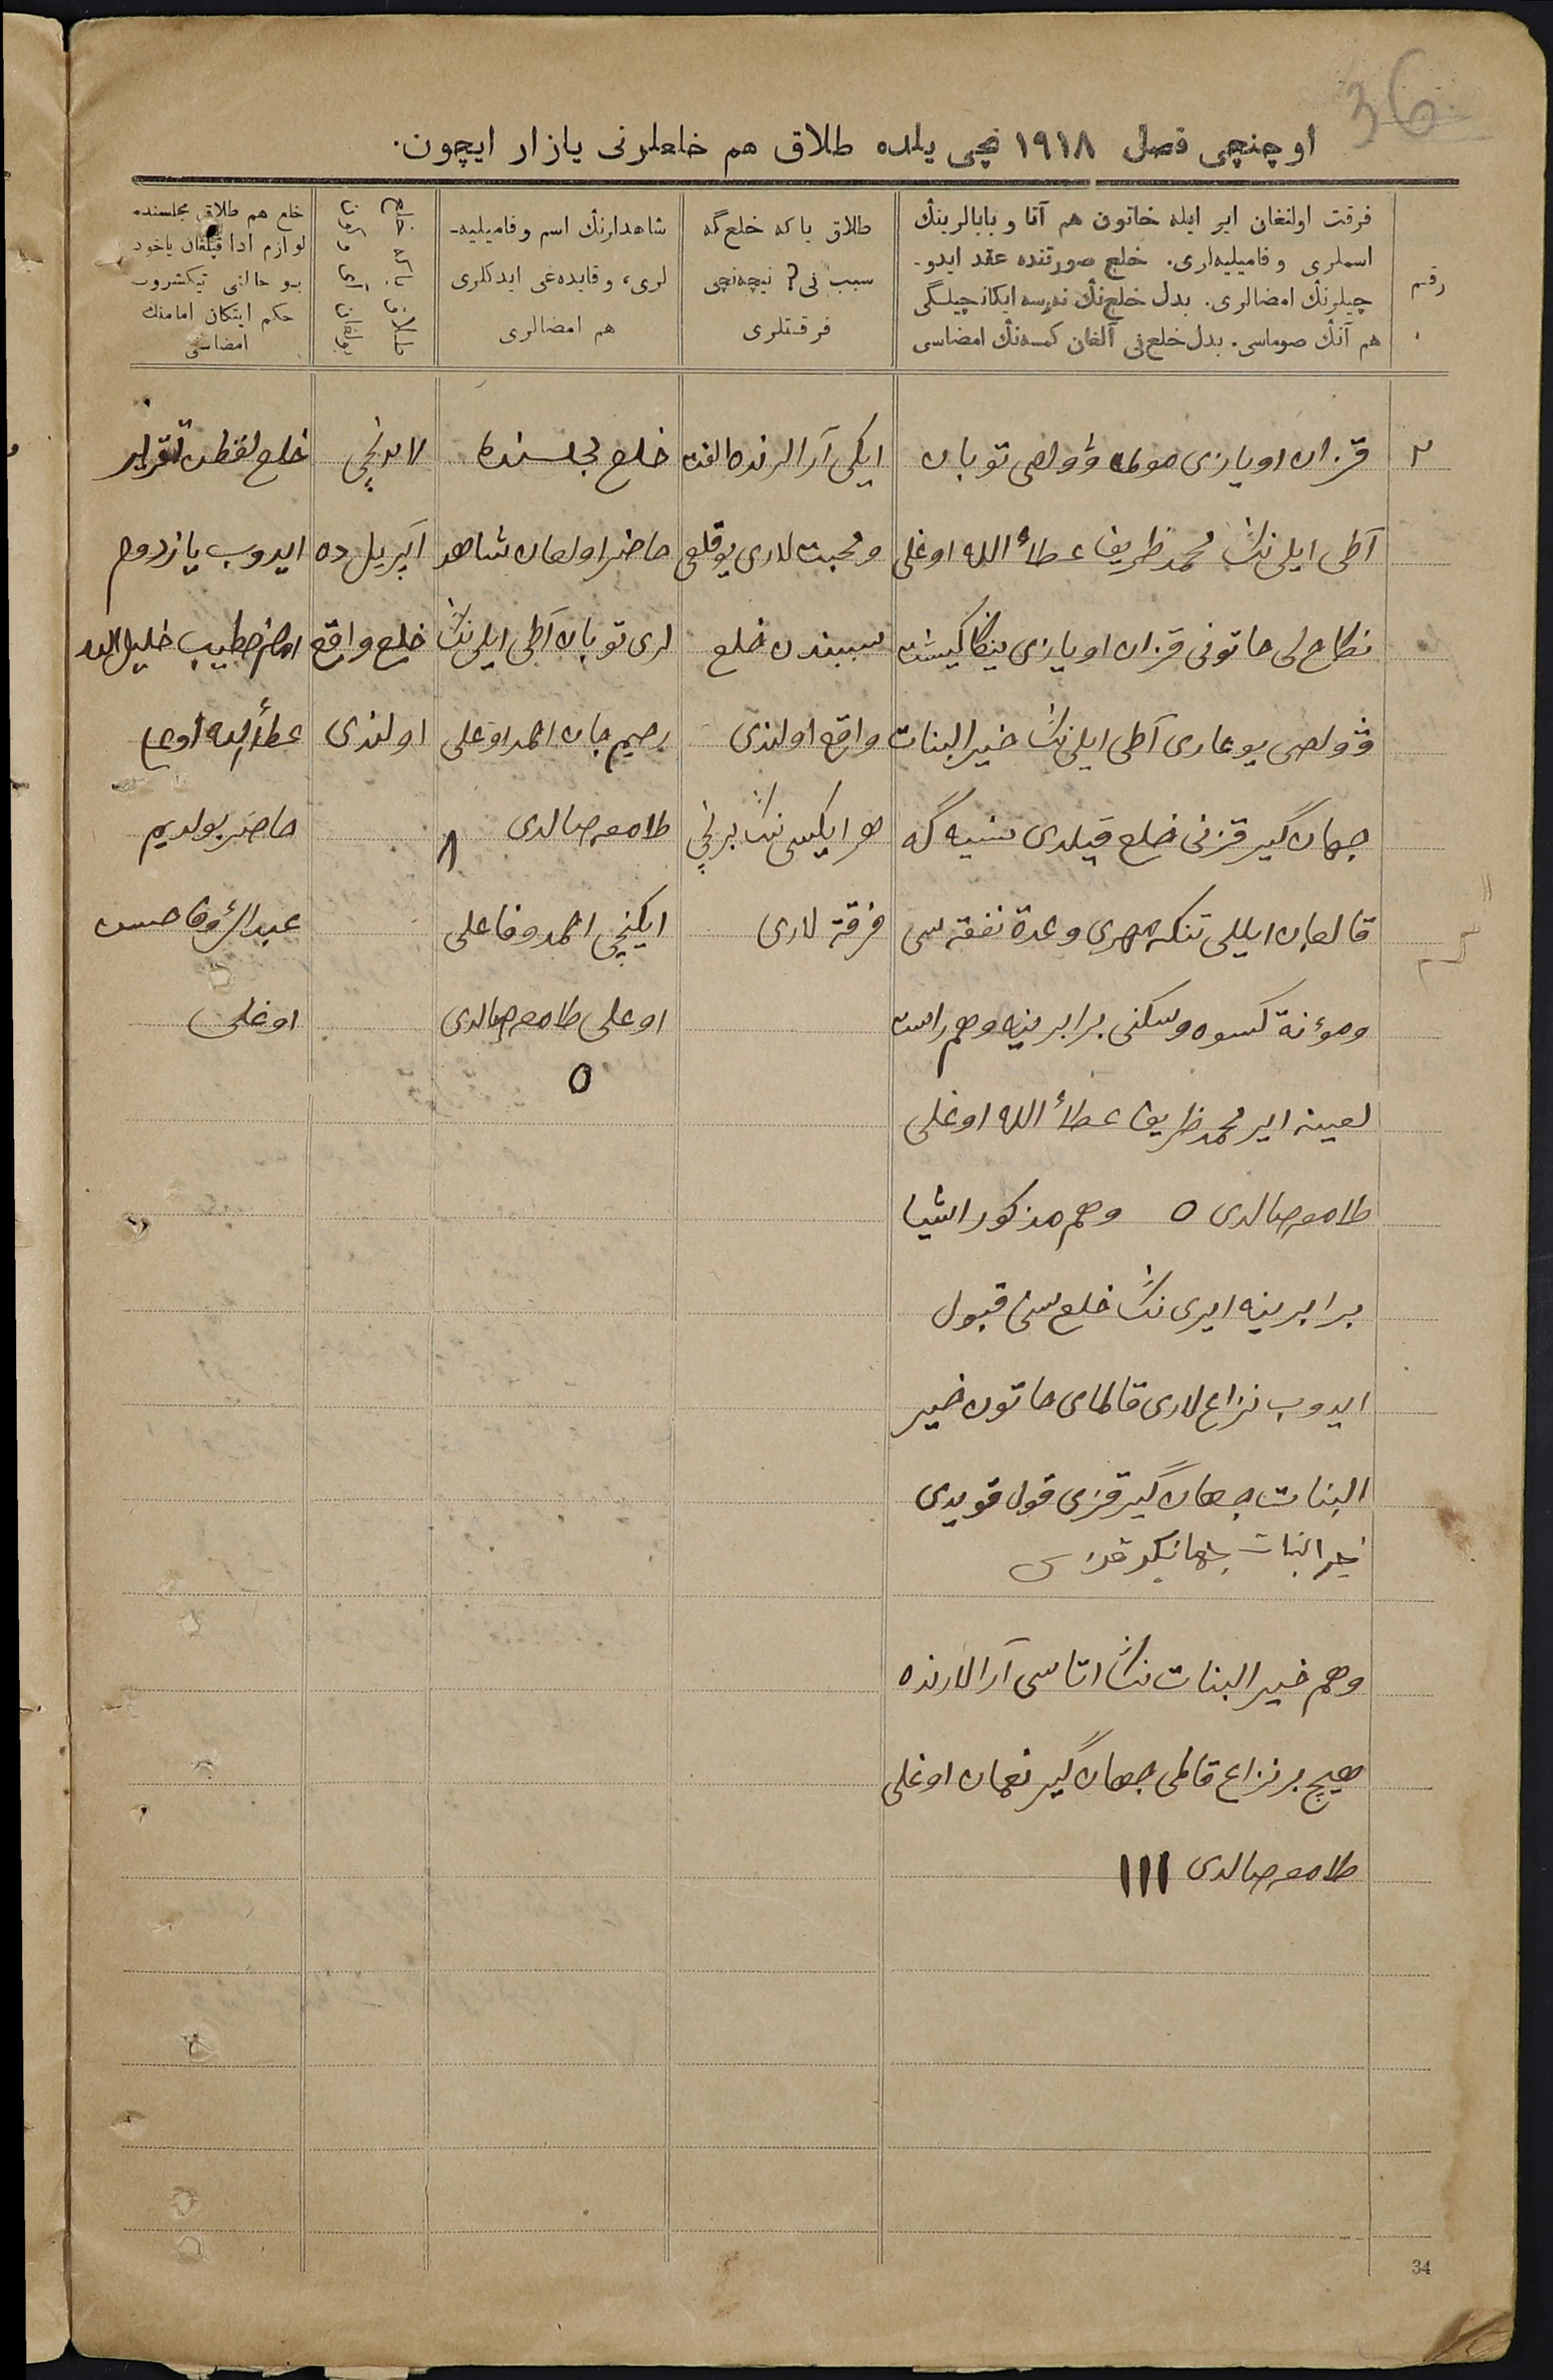 36
اوچنچی فصل ۱۹۱۸ نچی یلده طلاق هم خلعلرنی یازار ایچون.
رقم
فرقت اولنغان ایر ایله خاتون هم آتا و بابالرینڭ
اسملری و فامیلیه‌لری. خلع صورتنده عقد ایدو-
چیلرنڭ امضالری. بدل خلع‌نڭ نەرسه ایکانچیلگی
هم آنڭ صوماسی. بدل خلع‌نی آلغان کمسه‌نڭ امضاسی
طلاق یا که خلع گه
سبب نی؟ نیچه‌نچی
فرقتلری
شاهدلرنڭ اسم و فامیلیه-
لری، و قایده‌غی ایدکلری
هم امضالری
خلع هم طلاق مجلسنده
لوازم ادا قیلغان یاخود
بو حالنی تیکشروب
حکم ایتکان امامنڭ
امضاسی
۲
قزان اویازی وولصی توبان
آطی ایلی‌نڭ محمدظریف عطاءالله اوغلی
نکاح‌لی خاتونی قزان اویازی
وولصی یوغاری آطی ایلی‌نڭ خیرالبنات
جهان‌گیر قزنی خلع قیلدی سنیه‌گه
قالغان ایللی تنکه مهری و عدة نفقه‌سی
و مؤنة کسوه و سکنی برابرینه و هم راست
لعینه ایر محمدظریف عطاءالله اوغلی
طامغه صالدی O وهم مذکور اشیا
برابرینه ایری‌نڭ خلع‌سنی قبول
ایدوب نزاع‌لاری قالمای خاتون خیر
البنات جهان‌گیر قزی قول قویدی
خیرالبنات جهانگیر قزسی
وهم خیرالبنات‌نڭ اتاسی آرالارنده
هیچ بر نزاع قالمی جهان‌گیر نعمان اوغلی
طامغه صالدی III
ایکی آرالرنده الفت
و محبت‌لاری یوقلغی
سببندن خلع
واقع اولندی
هر ایکسی‌نڭ برنچی
فرقه‌لاری
خلع مجلسنده
حاضر اولغان شاهد
لری توبان آطی ایلی‌نڭ
رحیم‌جان احمد اوغلی
طامغه صالدی ۸
ایکنچی احمدوفا علی
اوغلی طامغه صالدی
O
۱۷ نچی
آپریل ده
خلع واقع
اولندی
خلع لفظن تقریر
ایدوب یازدوم
امام خطیب خلیل الله
عطاءالله اوغلی
حاضر بولدیم
عبدالرؤف حسن
اوغلی
34